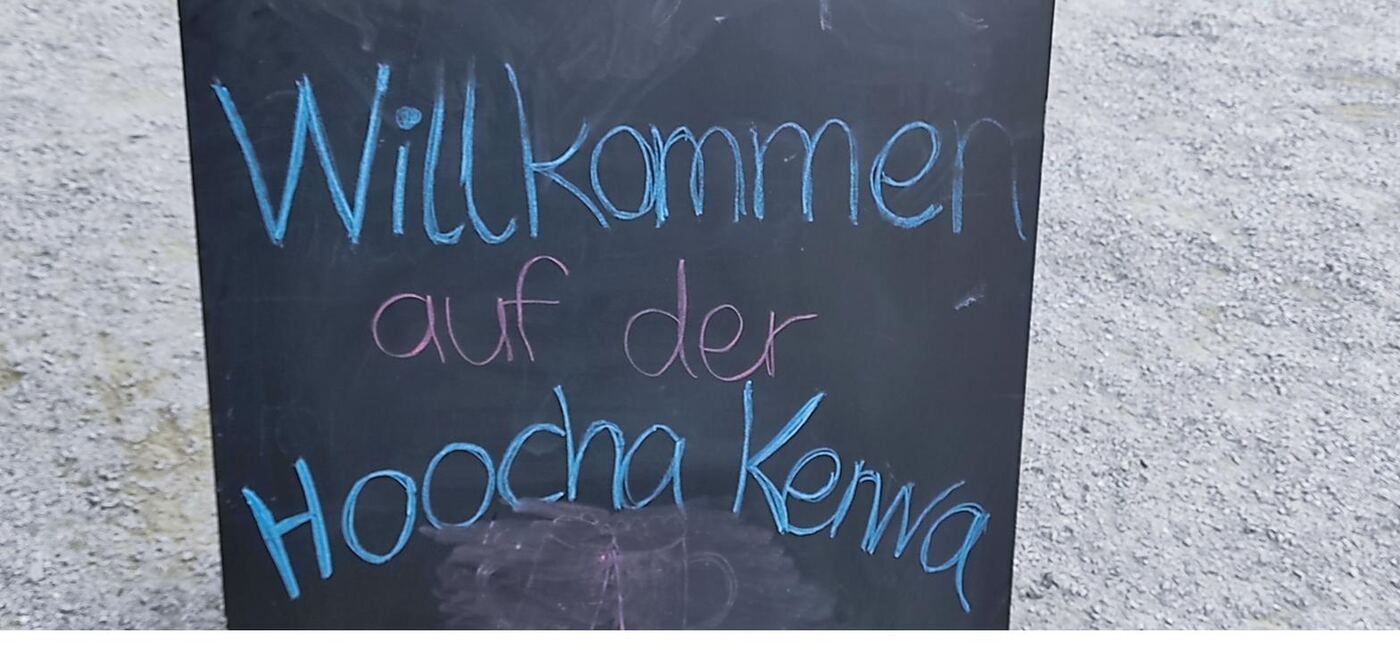 Willkommen
auf der
Hoocha Kerwa